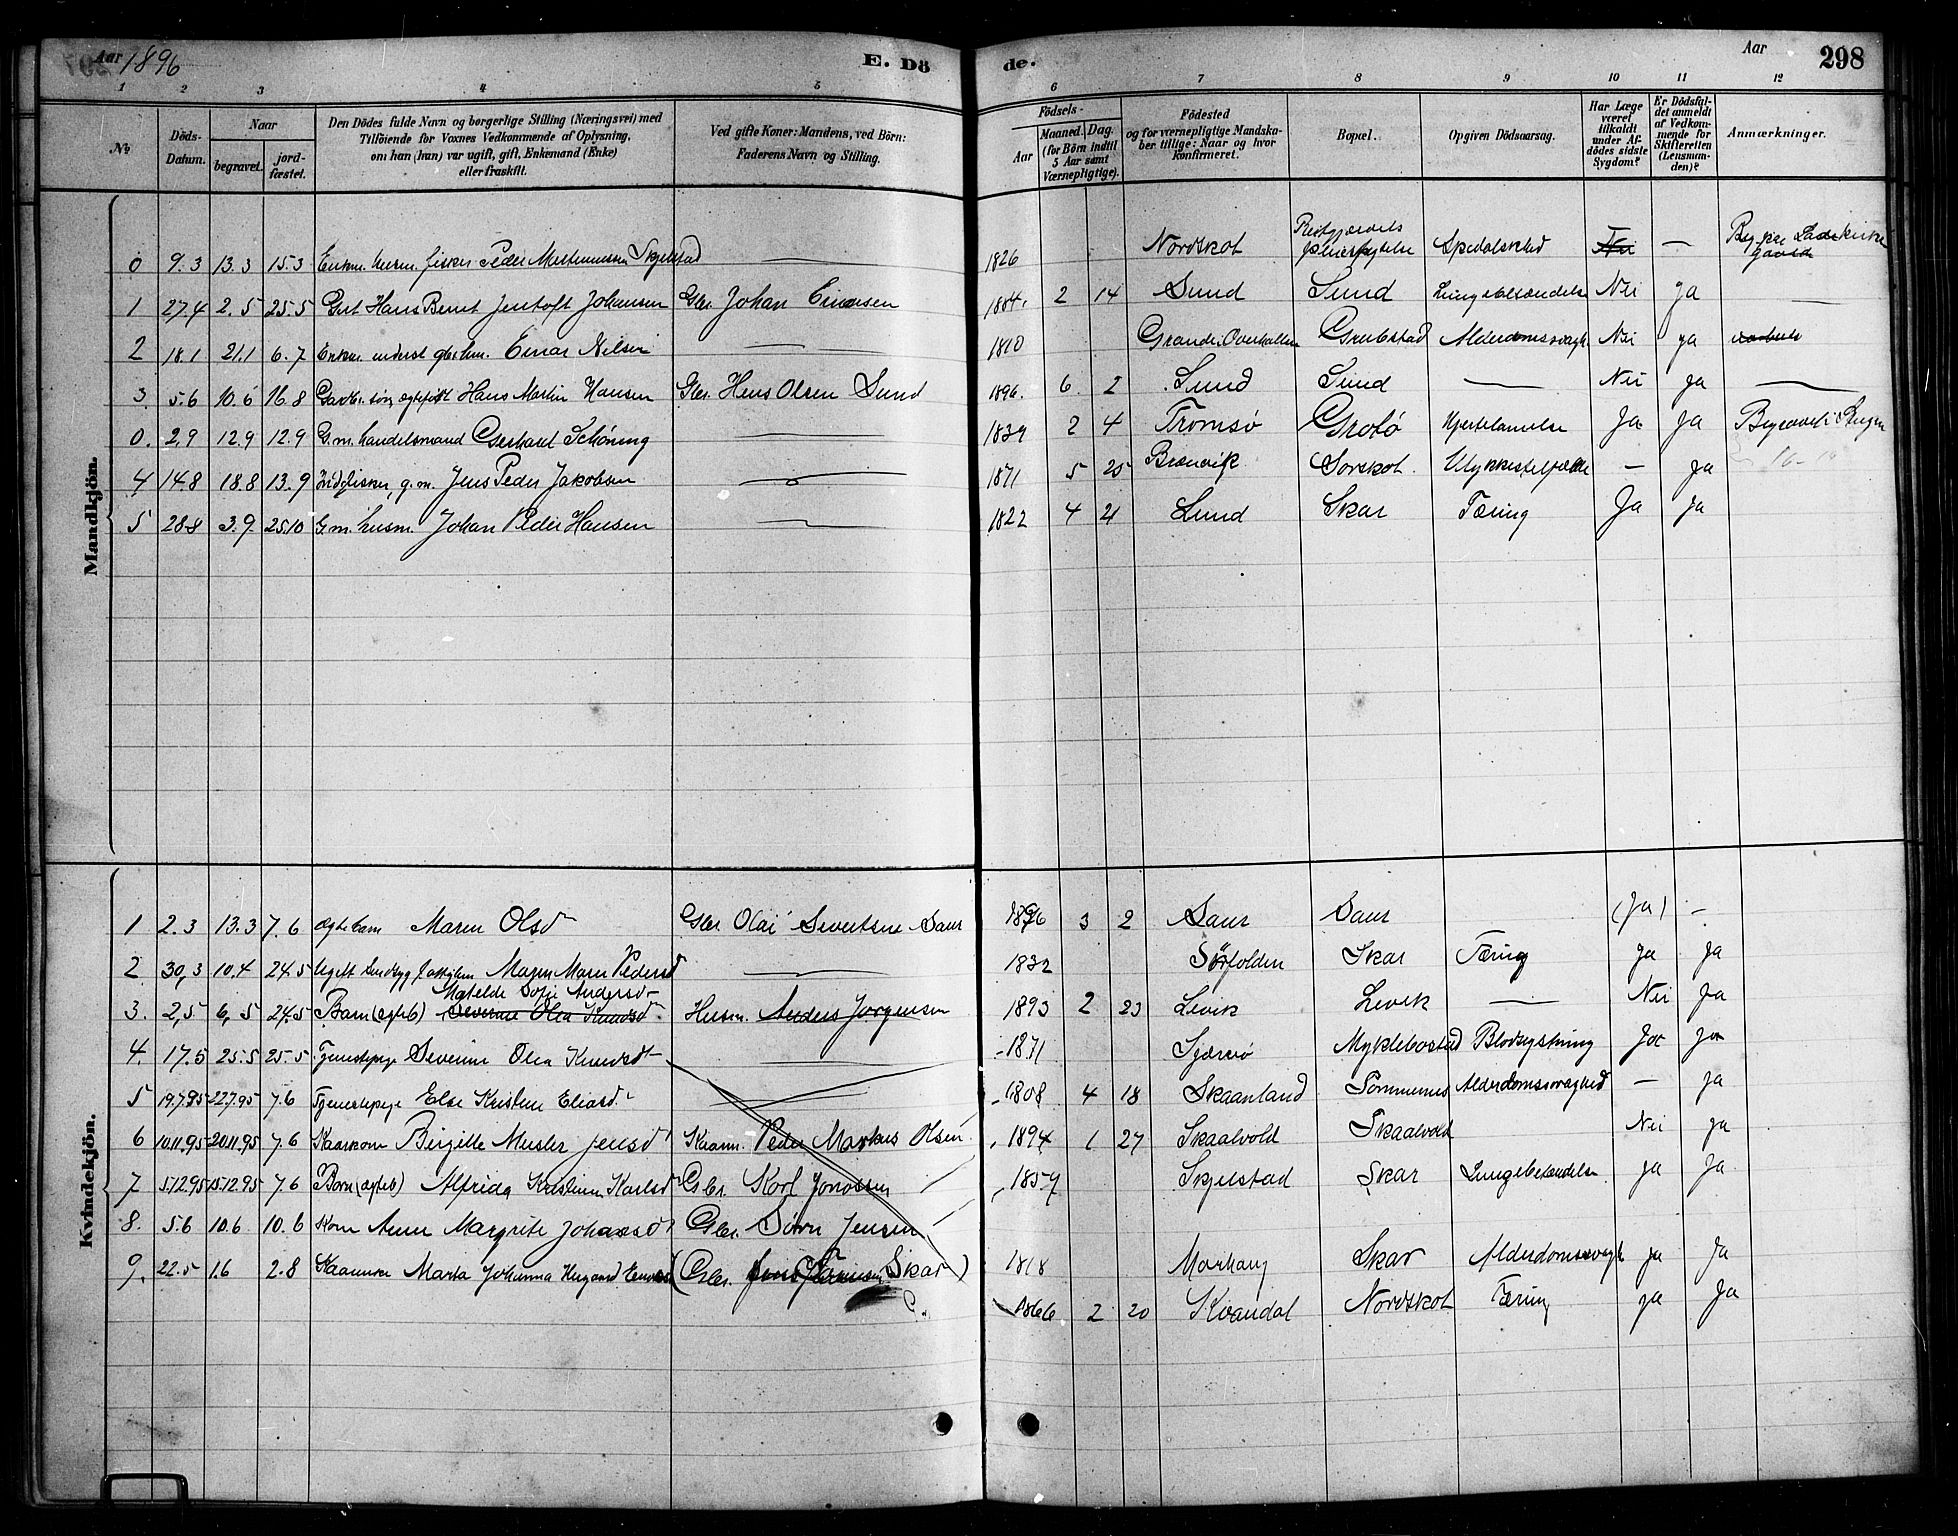 Aar 1896
E. Dö
de.
Aar
298
1 2 3 4 5
6 7 8 9 10 11 12
№
Döds-Datum.
Naar
begravet.
jord-fæstet.
Den Dödes fulde Navn og borgerlige Stilling (Næringsvei) med
Tilföiende for Voxnes Vedkommende af Oplysning,
om han (hun) var ugift, gift, Enkemand (Enke)
eller fraskilt.
Ved gifte Koner: Mandens, ved Börn:
Faderens Navn og Stilling.
Födsels-
Aar
Maaned. Dag.
(for Börn indtil
5 Aar samt
Værnepligtige).
Födested
og for værnepligtige Mandska-
ber tillige: Naar og hvor
konfirmeret.
Bopæl.
Opgiven Dödsaarsag.
Har Læge
været
tilkaldt
under Af-
dödes sidste
Sygdom?
Er Dödsfal-
det anmeldt
af Vedkom-
mende for
Skifteretten
(Lensman-
den)?
Anmærkninger.
Mandkjön.
0 9.3 13.3 15.3 Enkm. husm. fisker Peder Skjelstad 1826 Nordskot Spedalskhed Nei —
1 27.4 2.5 25.5 Gut Hans Bernt Jentoft Johansen Gbr. Johan Einarsen 1884. 2 14 Sund Sund Lungebetændelse Nei ja —
2 18.1 21.1 6.7 Enkm. Einar Nilsen — 1810 Grande i Overhallen Grubstad Alderdomssvagh. Nei ja
3. 5.6 10.6 16.8 Gaardbr. søn, Hans Martin Hansen Gbr. Hans Olsen Sund 1896. 6. 2 Sund Sund — Nei ja —
0. 2.9 12.9 12.9 G.m. handelsmand Gerhard Schöning — 1839 2 4 Tromsø Grotø Hjertelamelse Ja Ja Begravet i Steigen
4 14.8 18.8 13.9 Inds. fisker, g.m. Jens Peder Jakobsen — 1871 5 25 Brænvik Sørskot. Ulykkestilfælde — ja
5 28.8 3.9. 25.10 G.m. husm. Johan Peder Hansen — 1822 4 21 Lund Skar Tæring Ja ja
Kvindekjön.
1 2.3 13.3 7.6 Ægtebarn Maren Olsd. Gbr. Olai Sivertsen Saur 1896 3 2 Saur Saur (Ja) -
2 30.3 10.4 24.5 Ugift Maren Pedersd — 1832 Sørfolden Skar Tæring ja ja
Matelde Sofie Andersd.
3. 2.5 6.5 24.5 Barn (ægteb) Severine Olea Knudsd. Husm. Anders Jørgensen 1893 2 23 Levik Levik — Nei ja
4. 17.5 25.5 25.5 Tjenestepige Severine Olea Knudsd. — 1871 Myklebostad Blodstyrtning Ja ja
5 19.7.95 22.7.95 7.6 Tjenestepige Else Kristine Eliasd. 1808 4 18 Skaanland Sommernes Alderdomssvaghed — ja
6 10.11.95 20.11.95 7.6 Kaarkone Birgitte Jensd. Kaarm. Peder Markus Olsen. 1894 1 27 Skaalvold Skaalvold Nei ja
7 5.12.95 15.12.95 7.6 Barn (ægteb) Alfrida Kristine Karlsd. Gbr. Karl Jonassen 1857 Skjelstad Skar Lungebetændelse ja ja
8. 5.6 10.6 10.6 Kone Anne Margrete Johansd. Gbr. Sørn Jensen
9. 22.5 1.6 2.8 Marta Johanna (Gbr. Skar) 1818 Markang Skar Alderdomssvagh ja ja
1866 2 20 Kvandal Nordskot Tæring ja ja